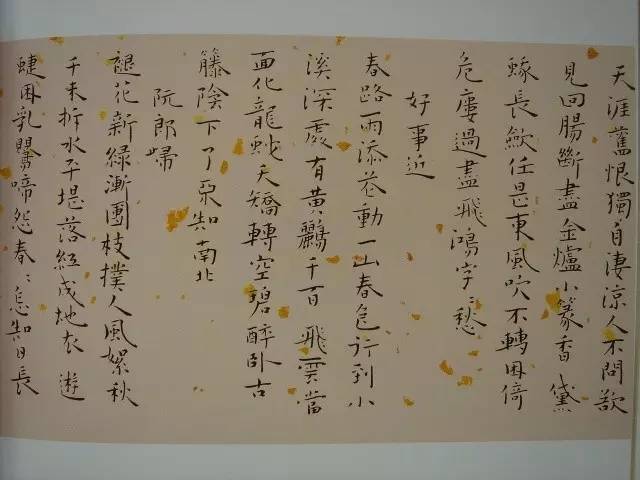 天涯舊恨獨自淒涼人不問欲
見回腸斷盡金爐小篆香黛
蛾長斂任是東風吹不轉困倚
危樓過盡飛鴻字〻愁
好事近
春路雨添花動一山春色行到小
溪深處有黃鸝千百飛雲當
面化龍蛇夭矯轉空碧醉臥古
籐陰下了不知南北
阮郎歸
褪花新綠漸團枝撲人風絮秋
千未拆水平堤落紅成地衣遊
蜨困乳鶯啼怨春〻怎知日長